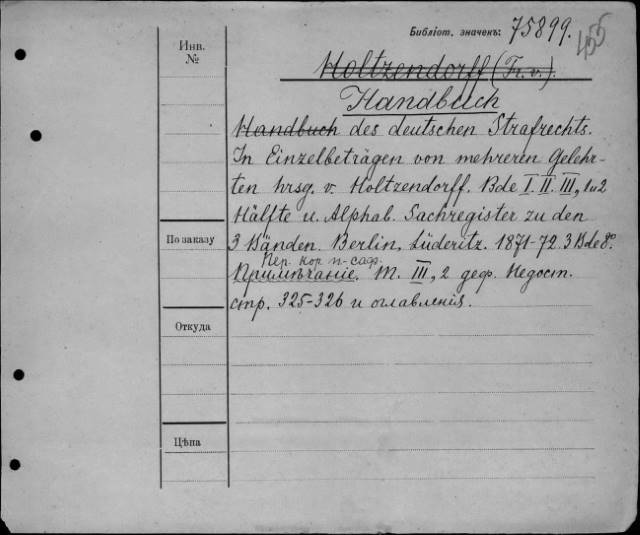 Библіот. значекъ: 75899.
455
Инв.
№
Holtzendorff (Fr. v.).
Handbuch
Handbuch des deutschen Strafrechts.
In Einzelbeträgen von mehreren Gelehr-
ten hrsg. v. Holtzendorff. Bde I. II. III, 1 u 2
Hälfte u. Alphab. Sachregister zu den
По заказу
3 Bänden. Berlin, Lüderitz. 1871-72. 3 Bde 8º.
Пер. кор п-саф.
Примѣчаніе. Т. III, 2 деф. Недост.
стр. 325-326 и оглавленія.
Откуда
Цѣна